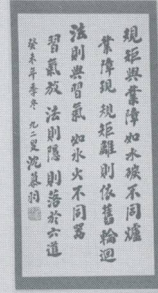 規矩與業障如水火不同爐
業障現規矩離則依舊輪迴
法則與習氣如水火不同器
習氣放法則隱則落於六道
癸未年季冬九二叟沈慕羽